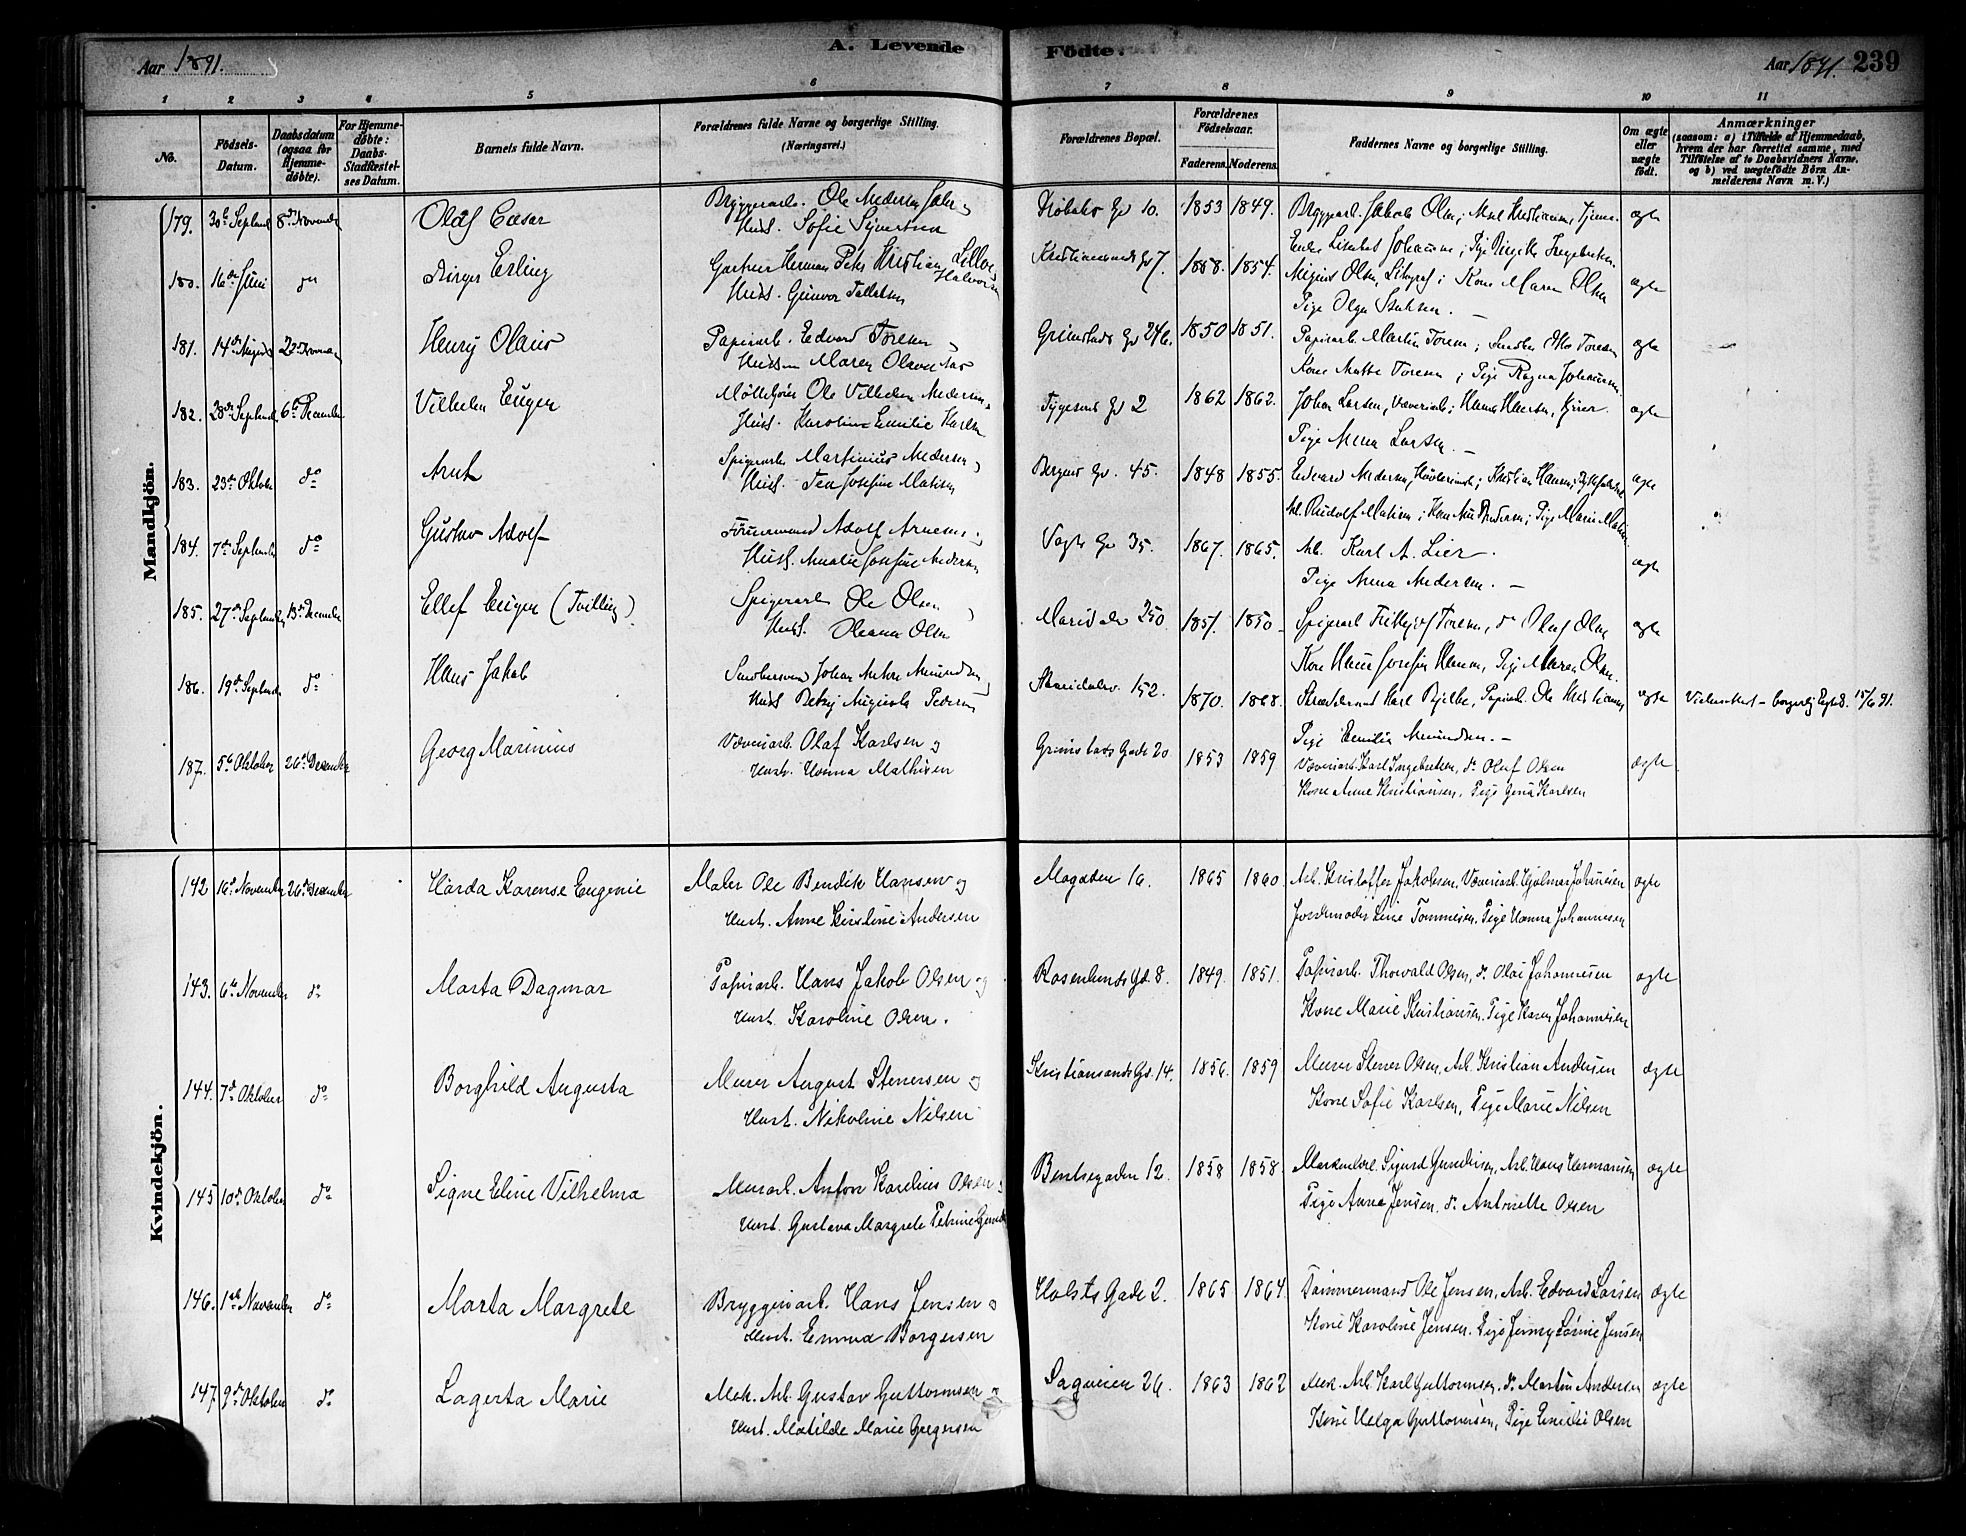 Aar 1891.
A. Levende Födte.
Aar 1891. 239
1 2 3 4 5 6 7 8 9 10 11
No.
Födsels-Datum.
Daabsdatum (ogsaa for Hjemme-döbte).
For Hjemme-döbte: Daabs-Stadfæstel-ses Datum.
Barnets fulde Navn.
Forældrenes fulde Navne og borgerlige Stilling. (Næringsvei.)
Forældrenes Bopæl.
Forældrenes Födselsaar.
Faderens. Moderens.
Faddernes Navne og borgerlige Stilling.
Om ægte eller uægte födt.
Anmærkninger
(saasom: a) i Tilfælde af Hjemmedaab,
hvem der har forrettet samme, med
Tilföielse af to Daabsvidners Navne,
og b) ved uægtefödte Börn An-
melderens Navn m. V.)
Mandkjön.
179. 30te Septemb 8de Novembr Olaf Cæsar Bryggeriarb. Ole Andersen
Hust. Sofie Sivertsen
Gd 10. 1853 1849. Bryggeriarb. Jakob Olsen; ægte
180. 16de Juni do Birger Erling Gartner Herman Peter Kristian Halvorsen
Hust. Gunvor Tollefsen
Kristiansunds Gd 7. 1858. 1854. August Olsen, Kone Maren Olsen ægte
Pige Olga
181. 14de August 22de Novembr Henry Olaus Papirarb. Edvard Toresen og
Hustru Maren
Grimstads Gd 24b. 1850 1851. Papirarb. Martin Toresen; Otto Toresen ægte
Kone Mathe Toresen; Pige Ragna Johansen
182. 28de Septemb 6te December Vilhelm Eugen Ole Vilhelm Andersen
Hust. Karoline Emilie Karlsen
Tygesens Gd 2 1862 1862. Johan Larsen, Væveriarb; Hans Hansen, ægte
Pige Anna Larsen
183. 23de Oktober do Arnt Spigerarb Martinius Andersen og
Hust. Tea Josefine Matisen
Bergens Gd. 45. 1848 1855. Edvard Andersen, Kristian Hansen, ægte
Arb. Rudolf Matisen; Pige Marie Matisen
184. 7de September do Gustav Adolf Adolf Arnesen og
Hust. Amalie Josefine Andersen
Vogts Gd 35. 1867. 1865. Arb. Karl A. Lier ægte
Pige Anna Andersen.
185. 27de September 13de December Ellef Eugen (Tvilling) Spigerarb Ole Olsen
Hust. Oleana Olsen
Maridalsv 250 1851. 1850 Spigerarb Fritjof Toresen, do Olaf Olsen ægte
Kone Hanne Josefine Hansen, Pige Maren Olsen
186. 19de Septemb do Hans Jakob Johan Anton Amundsen
Hust Betsy Augusta Pedersen
Maridalsv. 152. 1870. 1868. Karl Bjelke, Papirarb. Ole Kristiansen ægte 15/6 91.
Pige Emilie Amundsen.
187. 5te Oktober 26de December Georg Marinius Væveriarb. Olaf Karlsen og
Hust. Hanna Mathisen
Grimstads Gade 20 1853 1859 Væveriarb. Karl Ingebretsen, do Olaf Olsen ægte
Kone Anne Kristiansen, Pige Gina Karlsen
Kvindekjön.
142 16de November 26de December Harda Karense Eugenie Maler Ole Bendik Hansen og
Hust. Anne Kirstine Andersen
Mogaden 16. 1865 1860. Arb. Kristoffer Jakobsen, Væveriarb. Hjalmar Johannesen ægte
Jordemoder Line Tommesen, Pige Hanna Johannesen
143. 6te November do Marta Dagmar Papirarb. Hans Jakob Olsen og
Hust. Karoline Olsen.
Rosenlunds Gd. 8. 1849. 1851. Papirarb. Thorvald Olsen, do Olai Johannesen ægte
Kone Marie Kristiansen, Pige Karen Johannesen
144. 7de Oktober do Borghild Augusta Murer August Stenersen og
Hust. Nikoline Nilsen
Kristiansands Gd. 14. 1856. 1859 Murer Stener Olsen, Arb. Kristian Andersen ægte
Kone Sofie Karlsen, Pige Marie Nilsen
145 10de Oktober do Signe Eline Vilhelma Murarb. Anton Karelius Olsen og
Hust. Gustava Margrete Petrine
Bentsegaden 12. 1858 1858. Sigurd Gundersen, Arb. Hans Hermansen ægte
Pige Anna Jensen. do Antonette Olsen
146. 1ste November do Marta Margrete Bryggeriarb. Hans Jensen og
Hust. Emma Borgersen
Holsts Gade 2. 1865 1864. Tømmermand Ole Jensen, Arb. Edvard Larsen ægte
Kone Karoline Jensen. Pige Jenny Lovise Jensen
147. 9de Oktober do Lagerta Marie Mek. Arb. Gustav Guttormsen og
Hust. Matilde Marie Gregersen
Sagveien 26. 1863 1862 Mek. Arb. Karl Guttormsen. do Martin Andersen ægte
Kone Helga Guttormsen, Pige Emilie Olsen